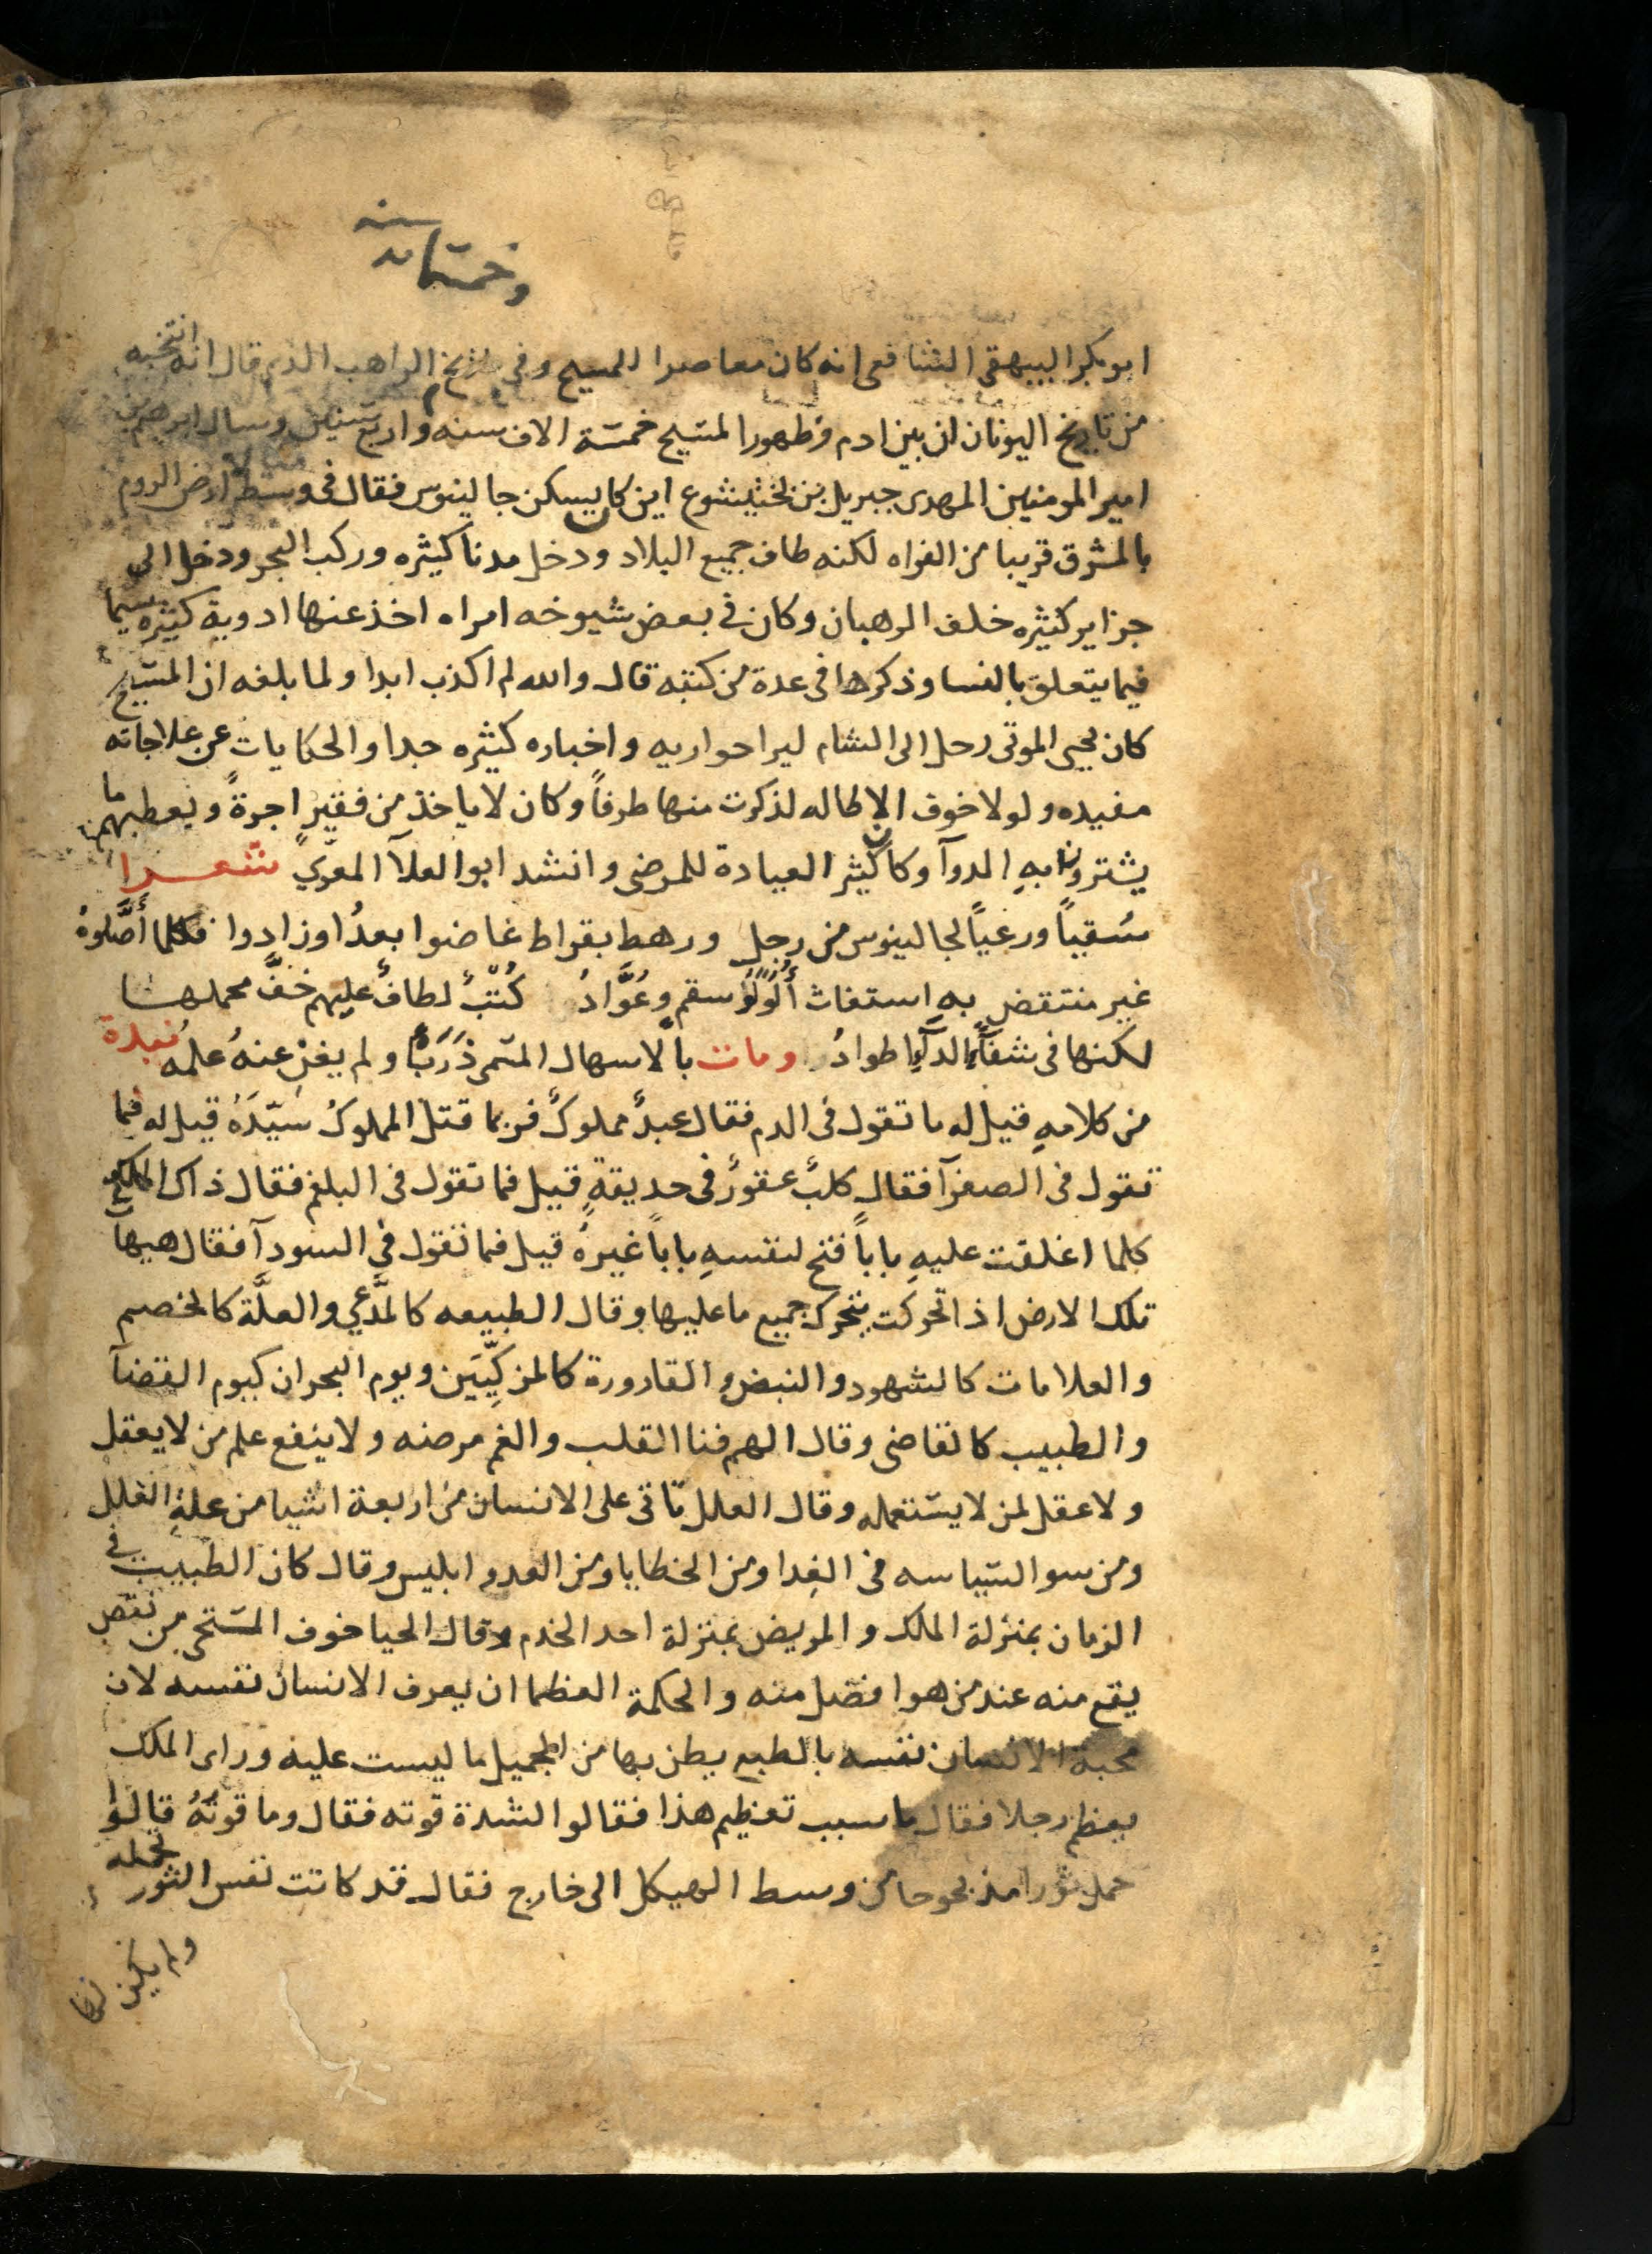 سنه
وخمسمايه
ابو بكر البيهقى الشافعى انه كان معاصرا للمسيح وفى تاريخ الراهب الذى قال انه انتخبه
من تاريخ اليونان ان بين ادم وظهور المسيح خمسة الاف سنه واربع سنين وسال ابرهيم بن
امير المومنين المهدى جبريل بن بختيشوع اين كان يسكن جالينوس فقال فى وسط ارض الروم
بالمشرق قريبا من الفراه لكنه طاف جميع البلاد ودخل مدنا كثيره وركب البحر ودخل الى
جزاير كثيره خلف الرهبان وكان فى بعض شيوخه امراه اخذ عنها ادوية كثيره سيما
فيما يتعلق بالنسا وذكرها فى عدة من كتبه قال والله لم اكذب ابدا ولما بلغه ان المسيح
كان يحيى الموتى رحل الى الشام ليرا حواريه واخباره كثيره جدا والحكايات عن علاجاته
مفيده ولولا خوف الاطاله لذكرت منها طرفاً وكان لا ياخذ من فقيرٍ اجرةً ويعطيهم ما
يشترون به الدوآ وكان كثير العيادة للمرضى وانشد ابو العلآ المعرّي شعرا
سُقياً ورعياً لجالينوس من رجلٍ ورهط بقراط غاضوا بعدُ اوزادوا فكلما أصَّلوهُ
غير منتقض بهِ استغاث أُولُو سقم وعُوَّادُ كُتْبٌ لطافٌ عليهم خفَّ محملها
لكنها فى شفآءِ الدآءِ اطوادُ ومات بالاسهال المسمى ذَرَبٌ ولم يغنِ عنهُ علمهُ نبدة
من كلامهِ قيل له ما تقول فى الدم فقال عبدٌ مملوكٌ فربما قتل المملوكُ سَيّدَهُ قيل له فما
تقول فى الصفرآ فقال كلبٌ عقورٌ فى حديقةٍ قيل فما تقول فى البلغم فقال ذاك الملك
كلما اغلقت عليهِ باباً فتح لنفسهِ باباً غيرهُ قيل فما تقول فى السودآ فقال هيهات
تلك الارض اذا تحركت يتحرك جميع ما عليها وقال الطبيعه كالمدَّعي والعلَّة كالخصم
والعلامات كالشهود والنبض والقارورة كالمزكِّيَين ويوم البحران كيوم القضآ
والطبيب كالقاضى وقال الهم فنا القلب والغم مرضه ولا ينفع علم من لا يعقل
ولا عقل لمن لا يستعمله وقال العلل تاتى على الانسان من اربعة اشيا من علة العلل
ومن سو السياسه فى الغدا ومن الخطايا ومن العدو ابليس وقال كان الطبيب فى
الزمان بمنزلة الملك والمريض بمنزلة احد الخدم وقال الحيا خوف المستحى من نقص
يقع منه عند من هو افضل منه والحكمة العظما ان يعرف الانسان نفسه لان
محبة الانسان نفسه بالطبع يظن بها من الجميل ما ليست عليه وراى الملك
يعظم رجلا فقال ما سبب تعظيم هذا فقالوا لشدة قوته فقال وما قوتهُ قالوا
حمل ثورا مذبوحا من وسط الهيكل الى خارج فقال قد كانت نفس الثور تحمله
ولم يكن لها